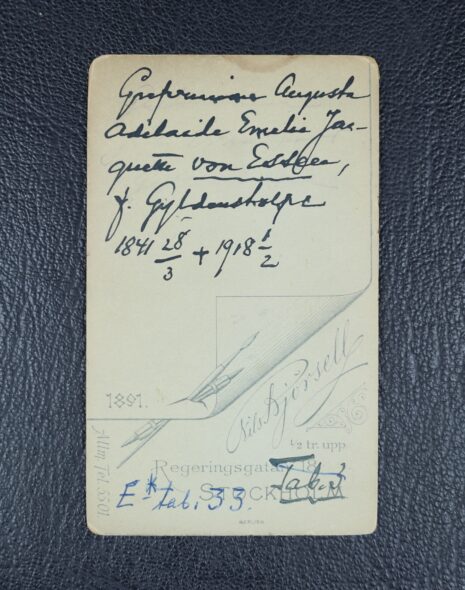 Grefvinnan Augusta
Adelaide Emelie Jac-
quette von Essen,
f. Gyldenstolpe
1841 28/3 + 1918 1/2
1891.
Nils Björsell
1/2 tr. upp.
Regeringsgatan 18
STOCKHOLM
Tab. 3
E k tab. 33.
Allm. Tel. 5501
BERLIN